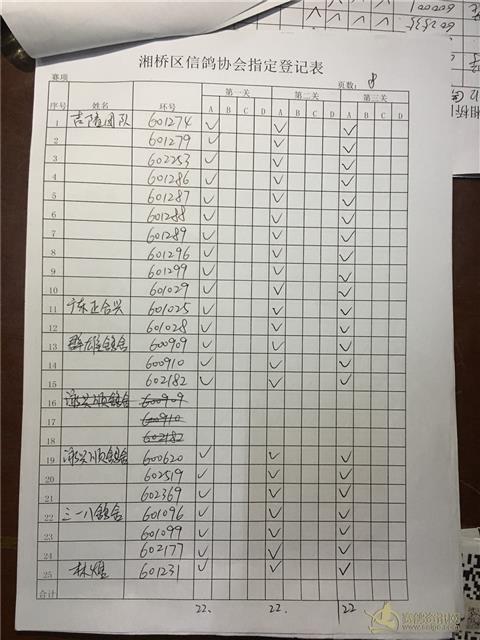 湘桥区信鸽协会指定登记表
赛项 页数: 8
序号 姓名 环号 第一关 第二关 第三关
A B C D A B C D A B C D
1 吉隆团队 601274 ✓ ✓ ✓
2 601279 ✓ ✓ ✓
3 602253 ✓ ✓ ✓
4 601286 ✓ ✓ ✓
5 601287 ✓ ✓ ✓
6 601288 ✓ ✓ ✓
7 601289 ✓ ✓ ✓
8 601296 ✓ ✓ ✓
9 601299 ✓ ✓ ✓
10 601029 ✓ ✓ ✓
11 广东正合兴 601025 ✓ ✓ ✓
12 601028 ✓ ✓ ✓
13 群雄鸽舍 600909 ✓ ✓ ✓
14 600910 ✓ ✓ ✓
15 602182 ✓ ✓ ✓
16 泳兴顺鸽舍 600909
17 600910
18 602182
19 泳兴顺鸽舍 600620 ✓ ✓ ✓
20 602519 ✓ ✓ ✓
21 602369 ✓ ✓ ✓
22 三一八鸽舍 601096 ✓ ✓ ✓
23 601099 ✓ ✓ ✓
24 602177 ✓ ✓ ✓
25 林煜 601231 ✓ ✓ ✓
合计
22. 22. 22